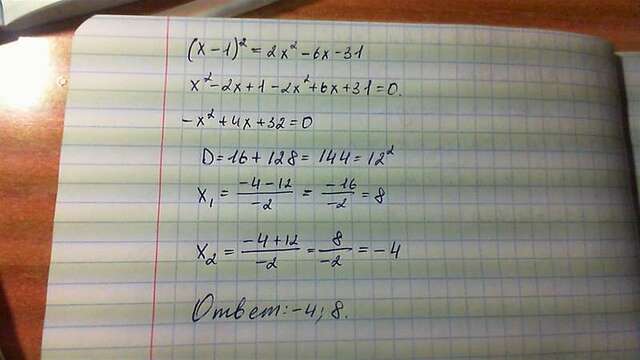 (x-1)² = 2x² - 6x - 31
x² - 2x + 1 - 2x² + 6x + 31 = 0.
-x² + 4x + 32 = 0
D = 16 + 128 = 144 = 12²
x₁ = (-4-12)/(-2) = (-16)/(-2) = 8
x₂ = (-4+12)/(-2) = 8/(-2) = -4
Ответ: -4; 8.